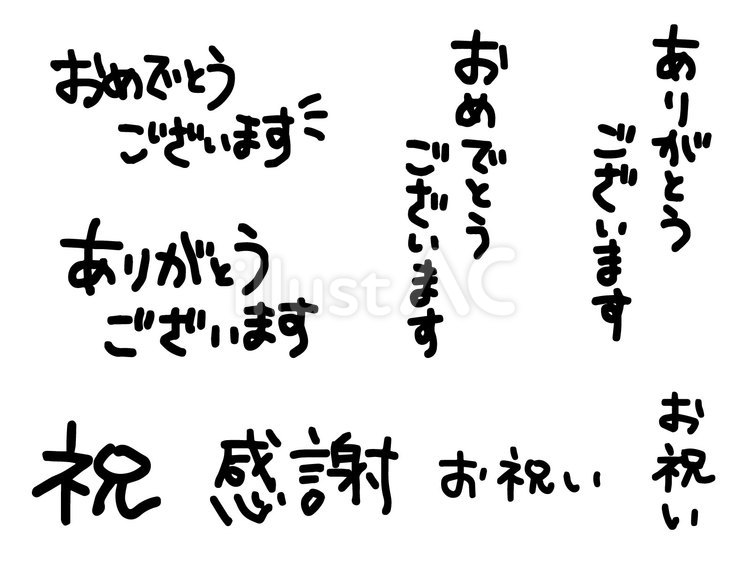 おめでとう
ございます
ありがとう
ございます
おめでとう
ございます
ありがとう
ございます
祝
感謝
お祝い
お祝い
illust AC